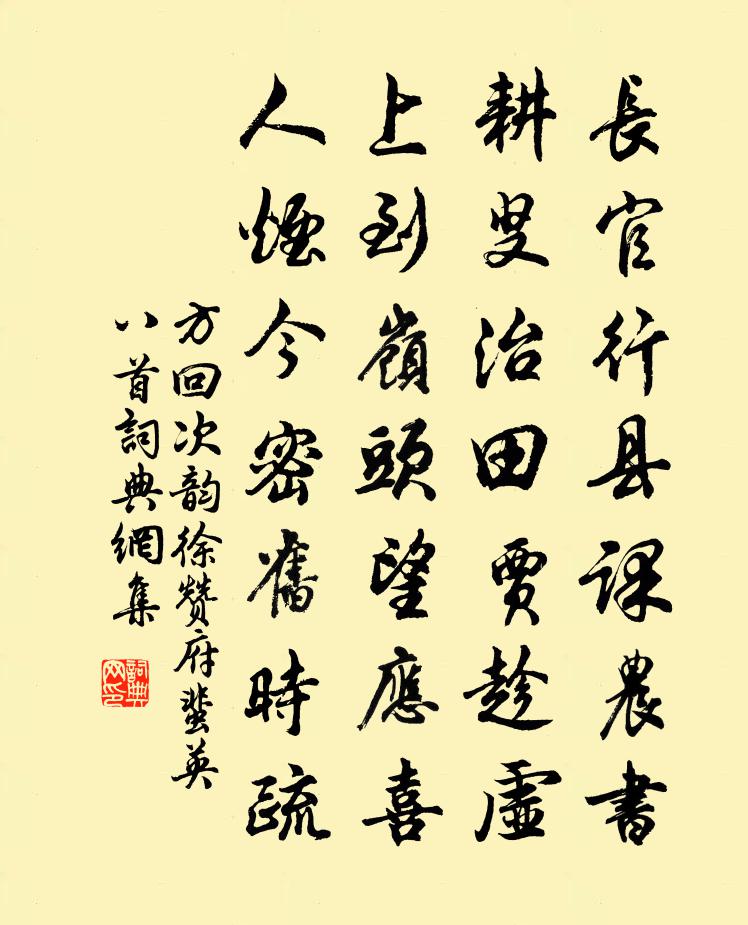 長官行县課農書
耕叟治田賈趁虛
上到嶺頭望應喜
人煙今密舊時疏
方回次韵徐赞府蜚英
八首詞典網集
詞典网印